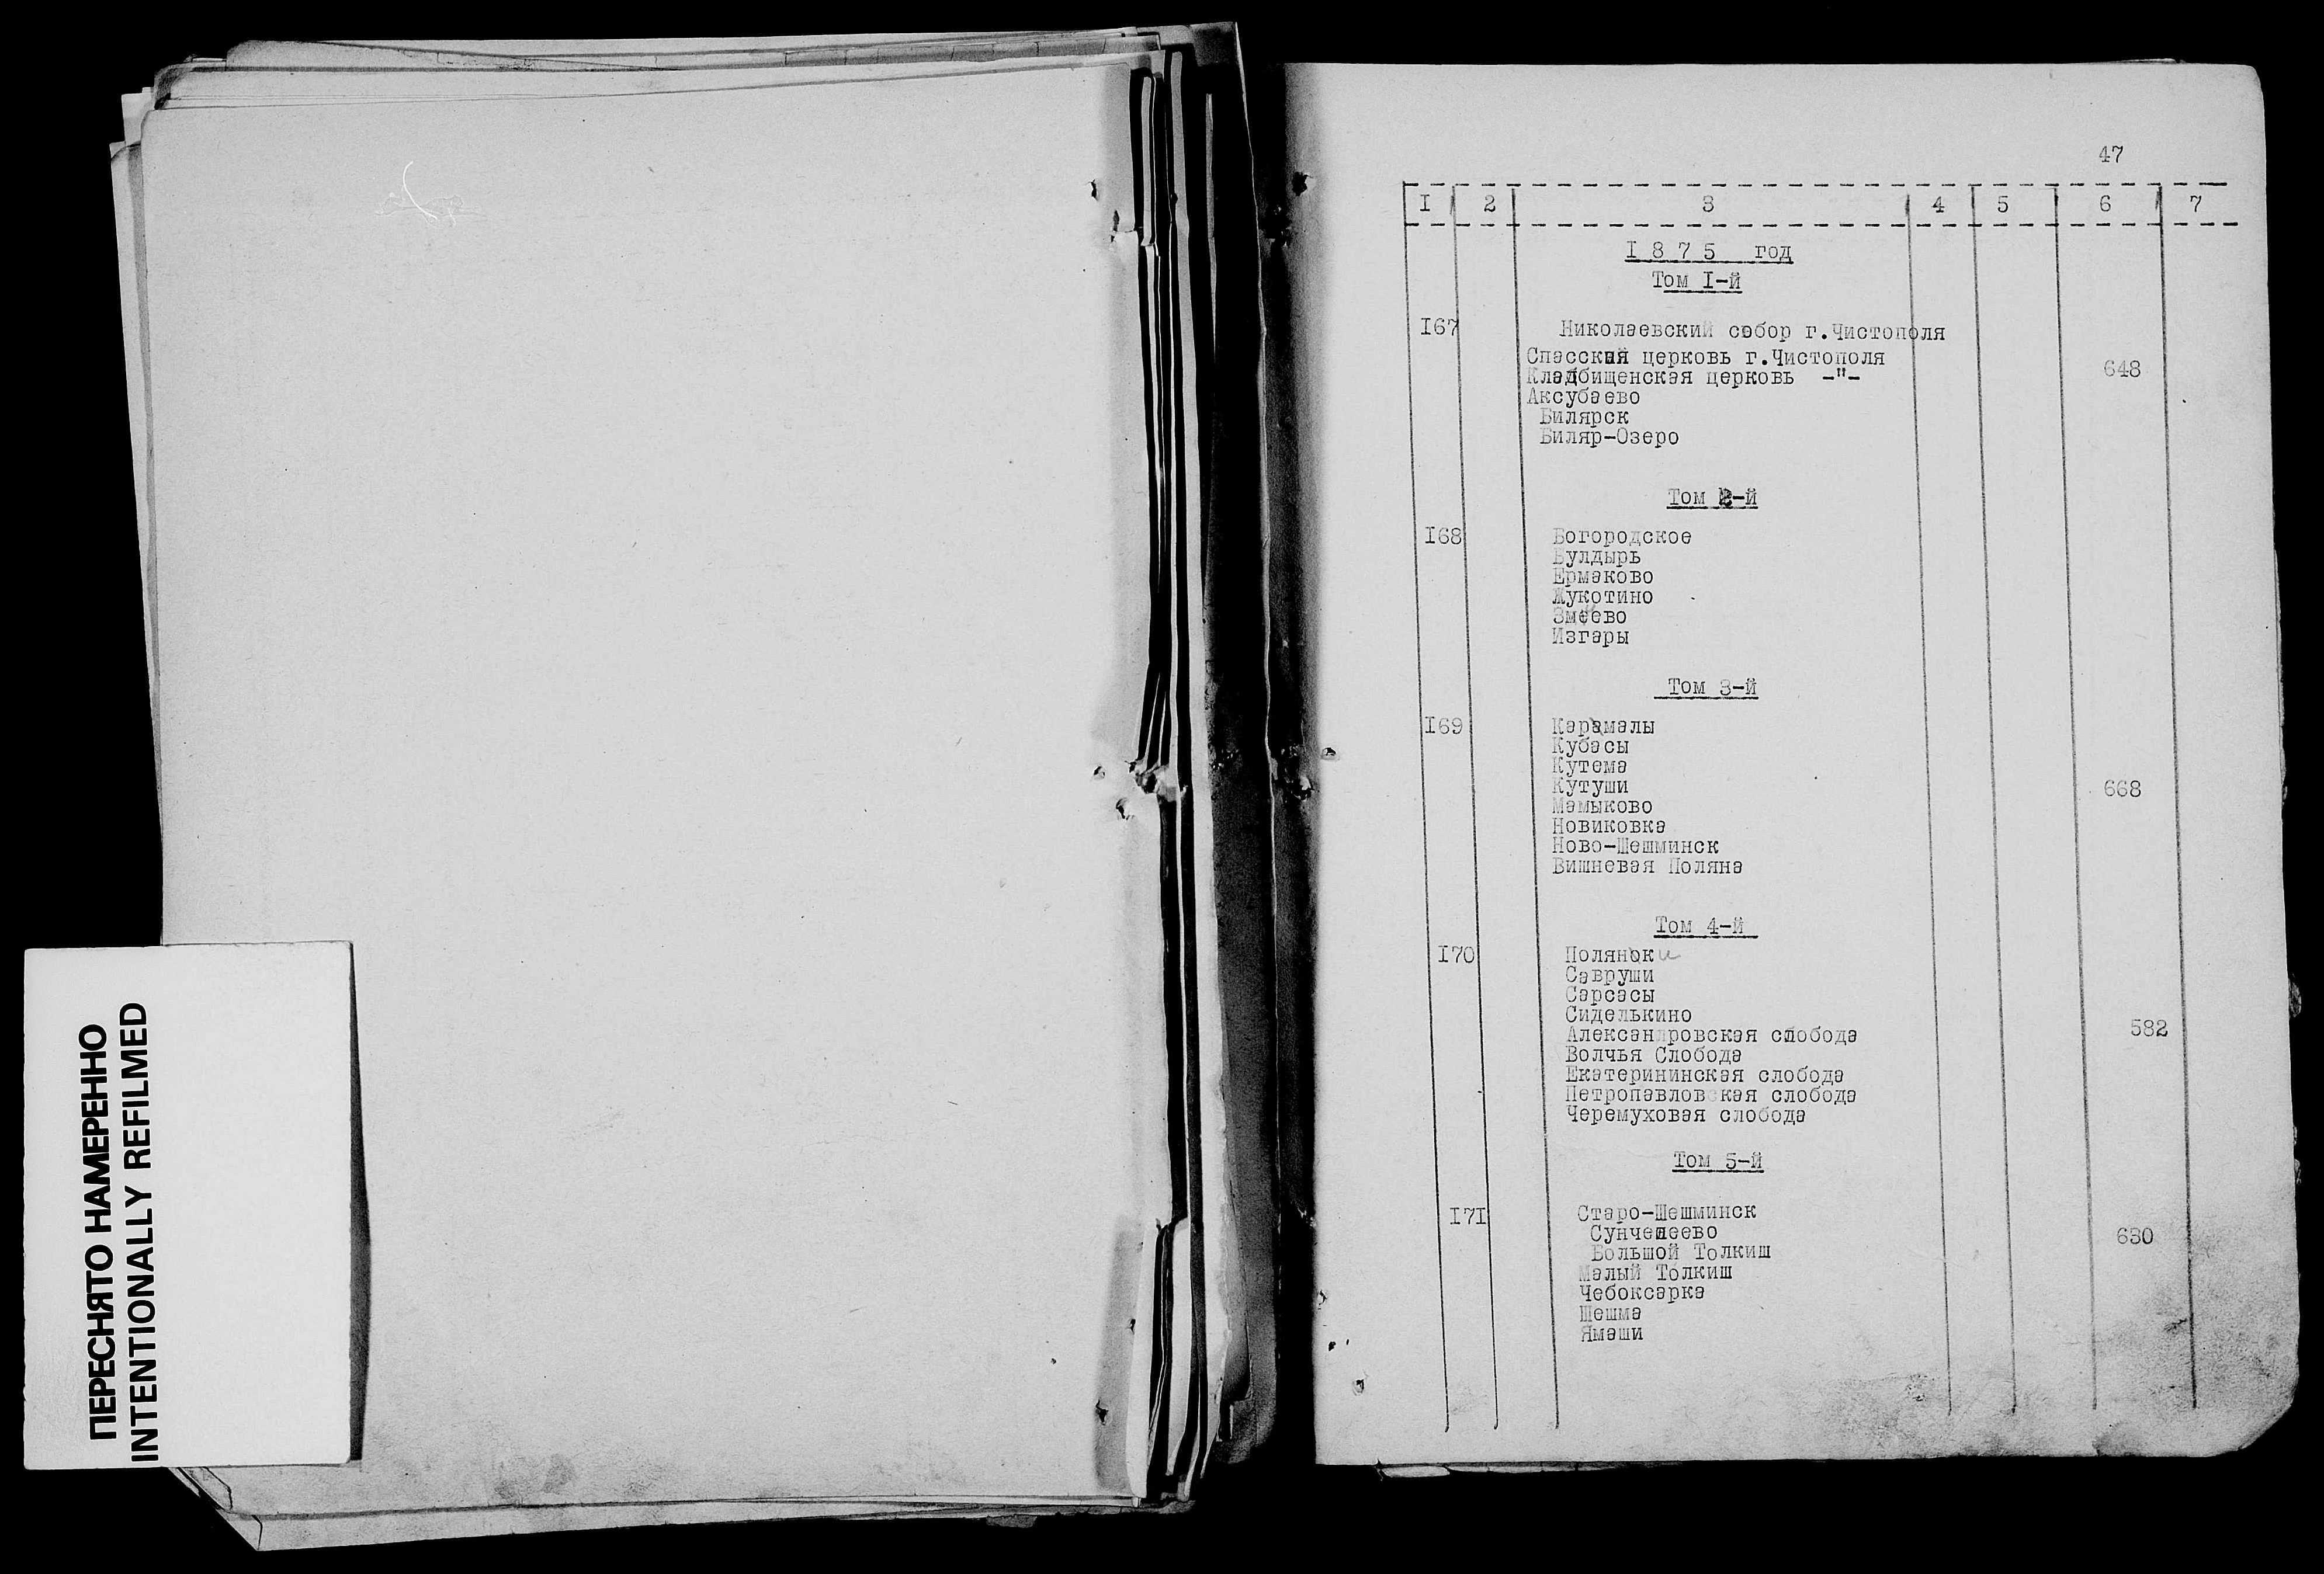 ПЕРЕСНЯТО НАМЕРЕННО
INTENTIONALLY REFILMED
47
I 2 3 4 5 6 7
I 8 7 5 год
Том I-й
I67 Николаевский собор г.Чистополя
Спасская церковь г.Чистополя
648
Кладбищенская церковь -"-
Аксубаево
Билярск
Биляр-Озеро
Том 2-й
I68 Богородское
Булдырь
Ермаково
Жукотино
Змиево
Изгары
Том 3-й
I69 Карамалы
Кубасы
Кутема
Кутуши 668
Мамыково
Новиковка
Ново-Шешминск
Вишневая Поляна
Том 4-й
I70 Полянки
Савруши
Сарсасы
Сиделькино
Александровская слобода 582
Волчья Слобода
Екатерининская слобода
Петропавловская слобода
Черемуховая слобода
Том 5-й
I7I Старо-Шешминск
Сунчелеево 630
Большой Толкиш
Малый Толкиш
Чебоксарка
Шешма
Ямаши